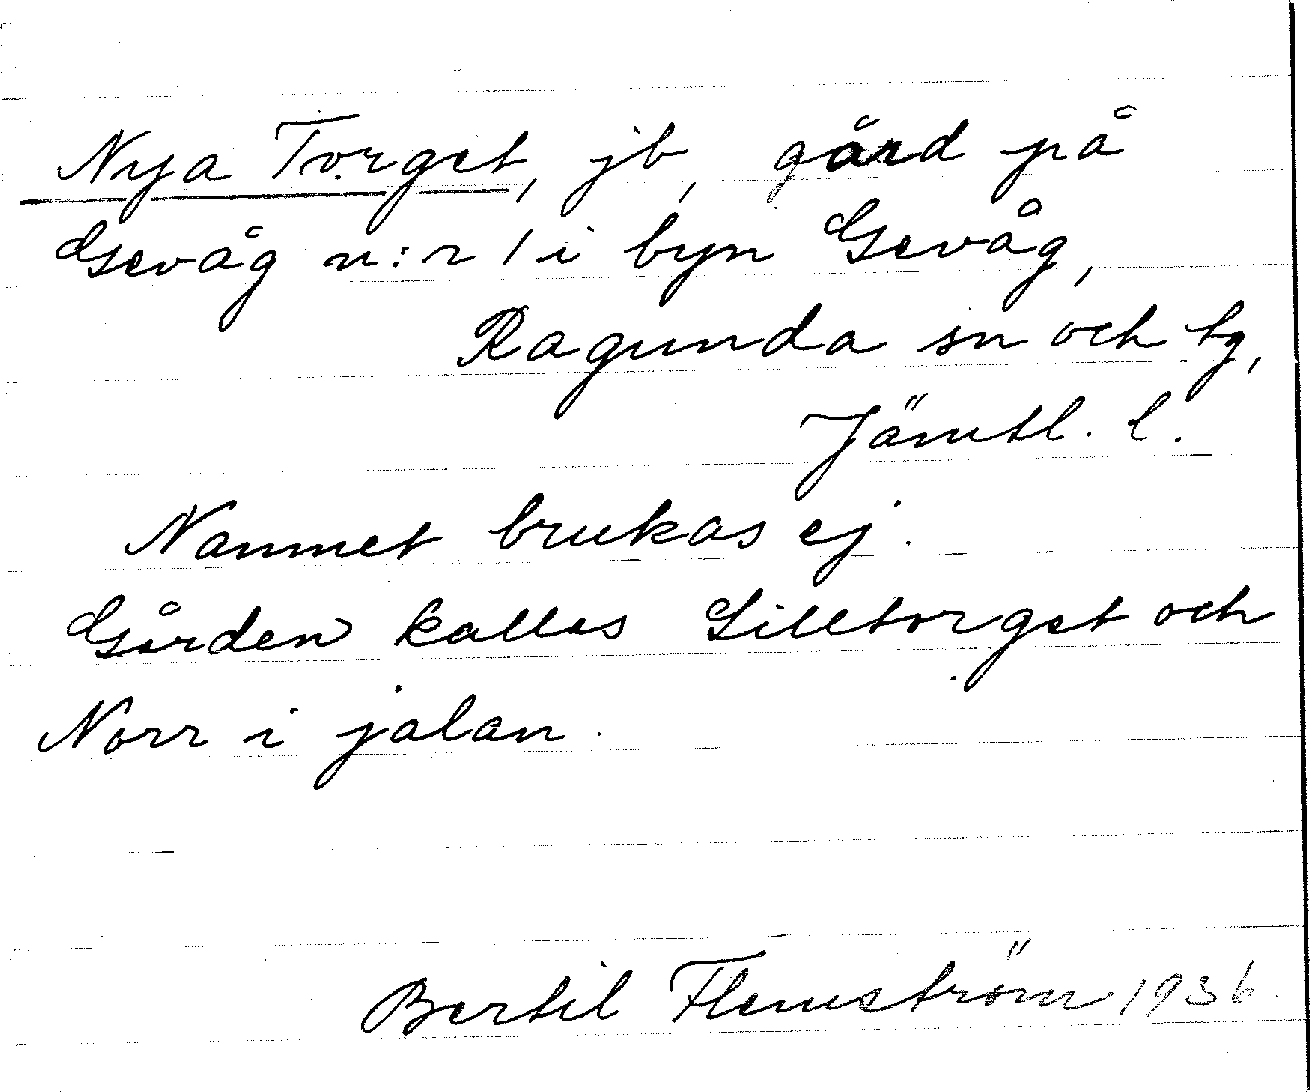 Nya Torget, jb, gård på
Gevåg n:r 1 i byn Gevåg,
Ragunda sn och tg,
Jämtl. l.
Namnet brukas ej.
Gården kallas Lilltorget och
Norr i jalan.
Bertil Flemström 1936.